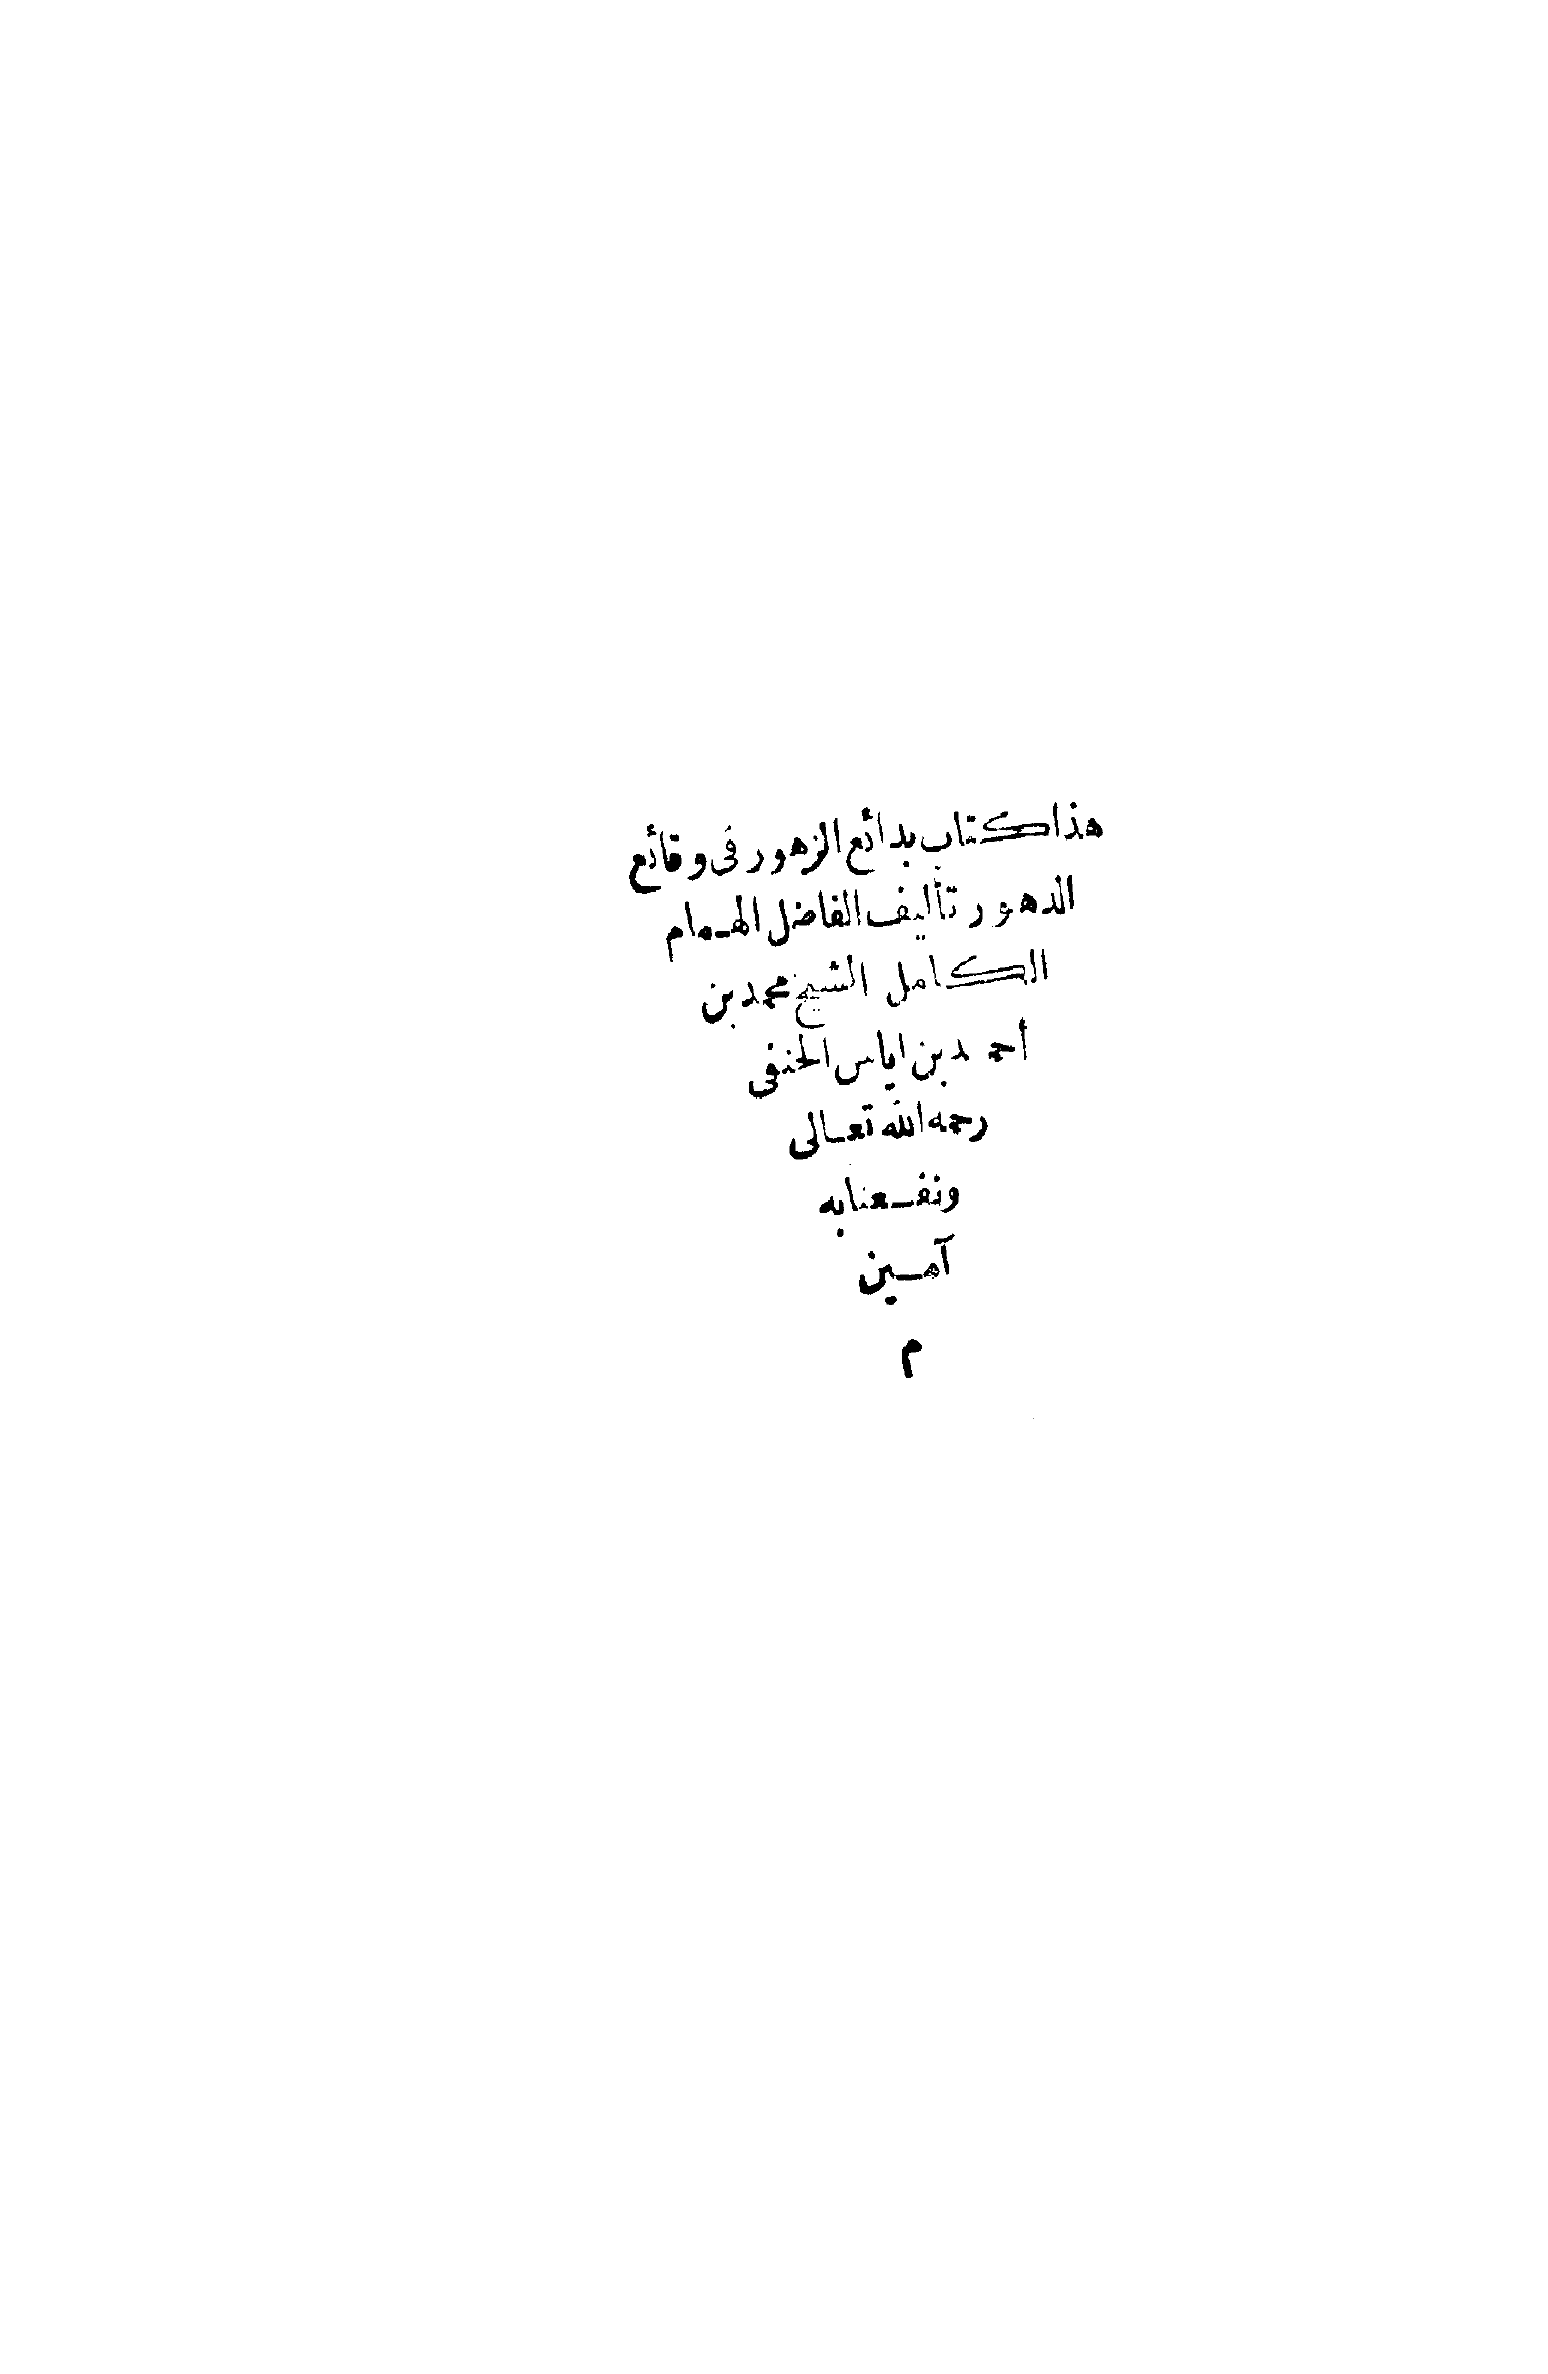 هذا كتاب بدائع الزهور فى وقائع
الدهور تأليف الفاضل الهمام
الكامل الشيخ محمد بن
أحمد بن اياس الحنفى
رحمه الله تعالى
ونفعنا به
آمين
م